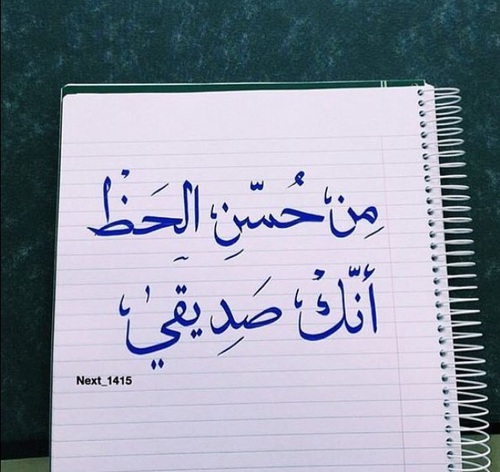 مِن حُسّنِ الحَظْ
أنّكْ صَدِيقي
Next_1415